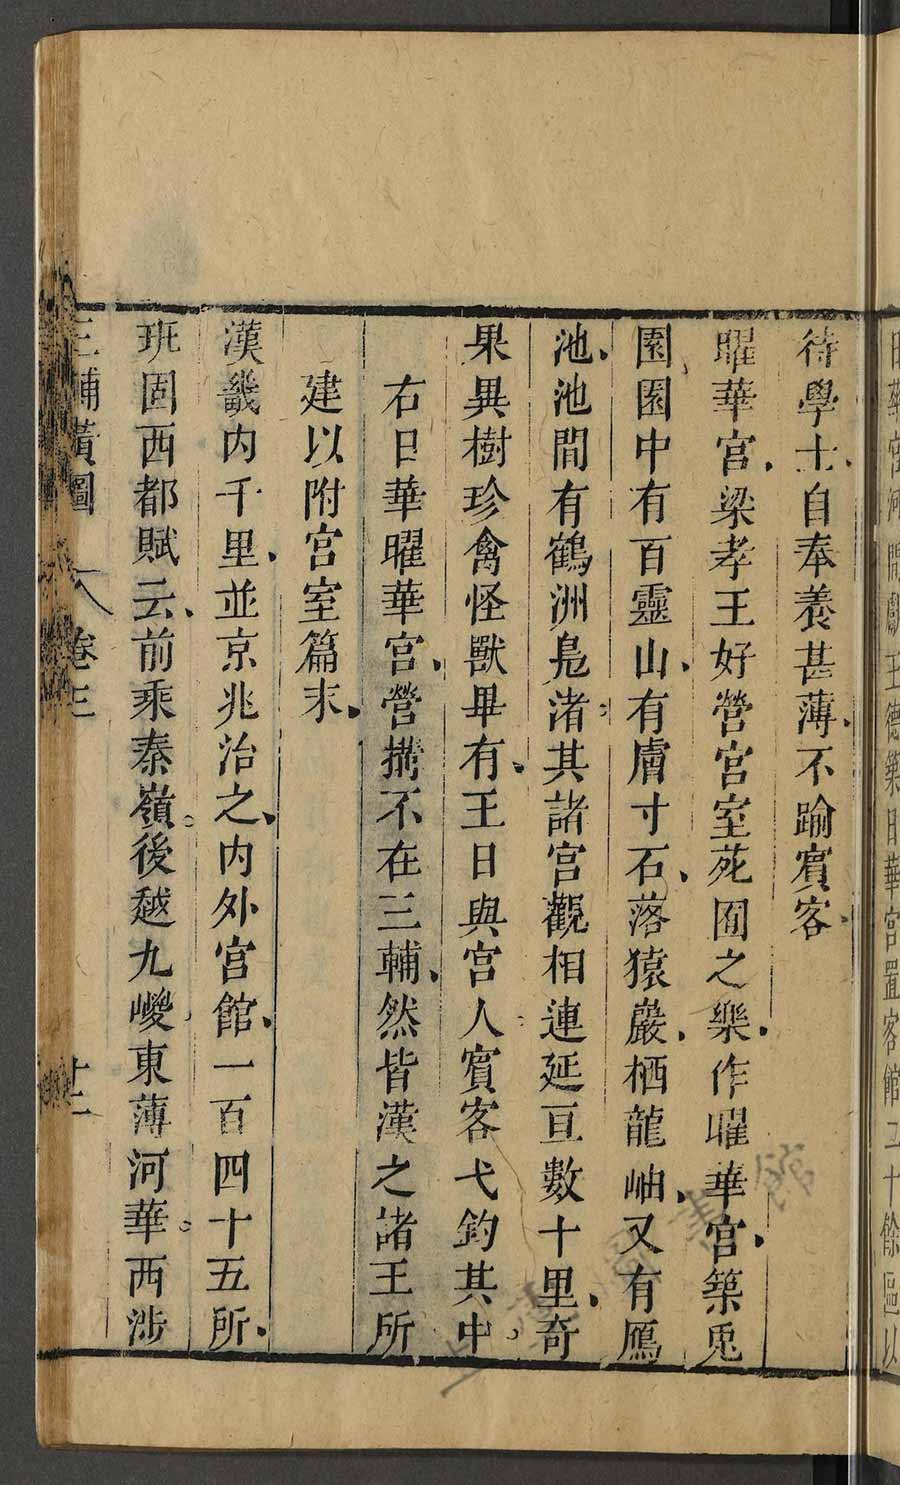 日華宮河間獻王德築日華宮置客館二十餘區以
待學士自奉養甚薄不踰賓客
曜華宮梁孝王好營宮室苑囿之樂作曜華宮築兎
園園中有百靈山有膚寸石落猿巖栖龍岫又有鴈
池池間有鶴洲鳧渚其諸宮觀相連延亘數十里奇
果異樹珍禽怪獸畢有王日與宮人賓客弋釣其中
右日華曜華宮營搆不在三輔然皆漢之諸王所
建以附宮室篇末
漢畿内千里並京兆治之内外宮館一百四十五所
班固西都賦云前乘秦嶺後越九嵕東薄河華西涉
三輔黃圖 卷三 廿二